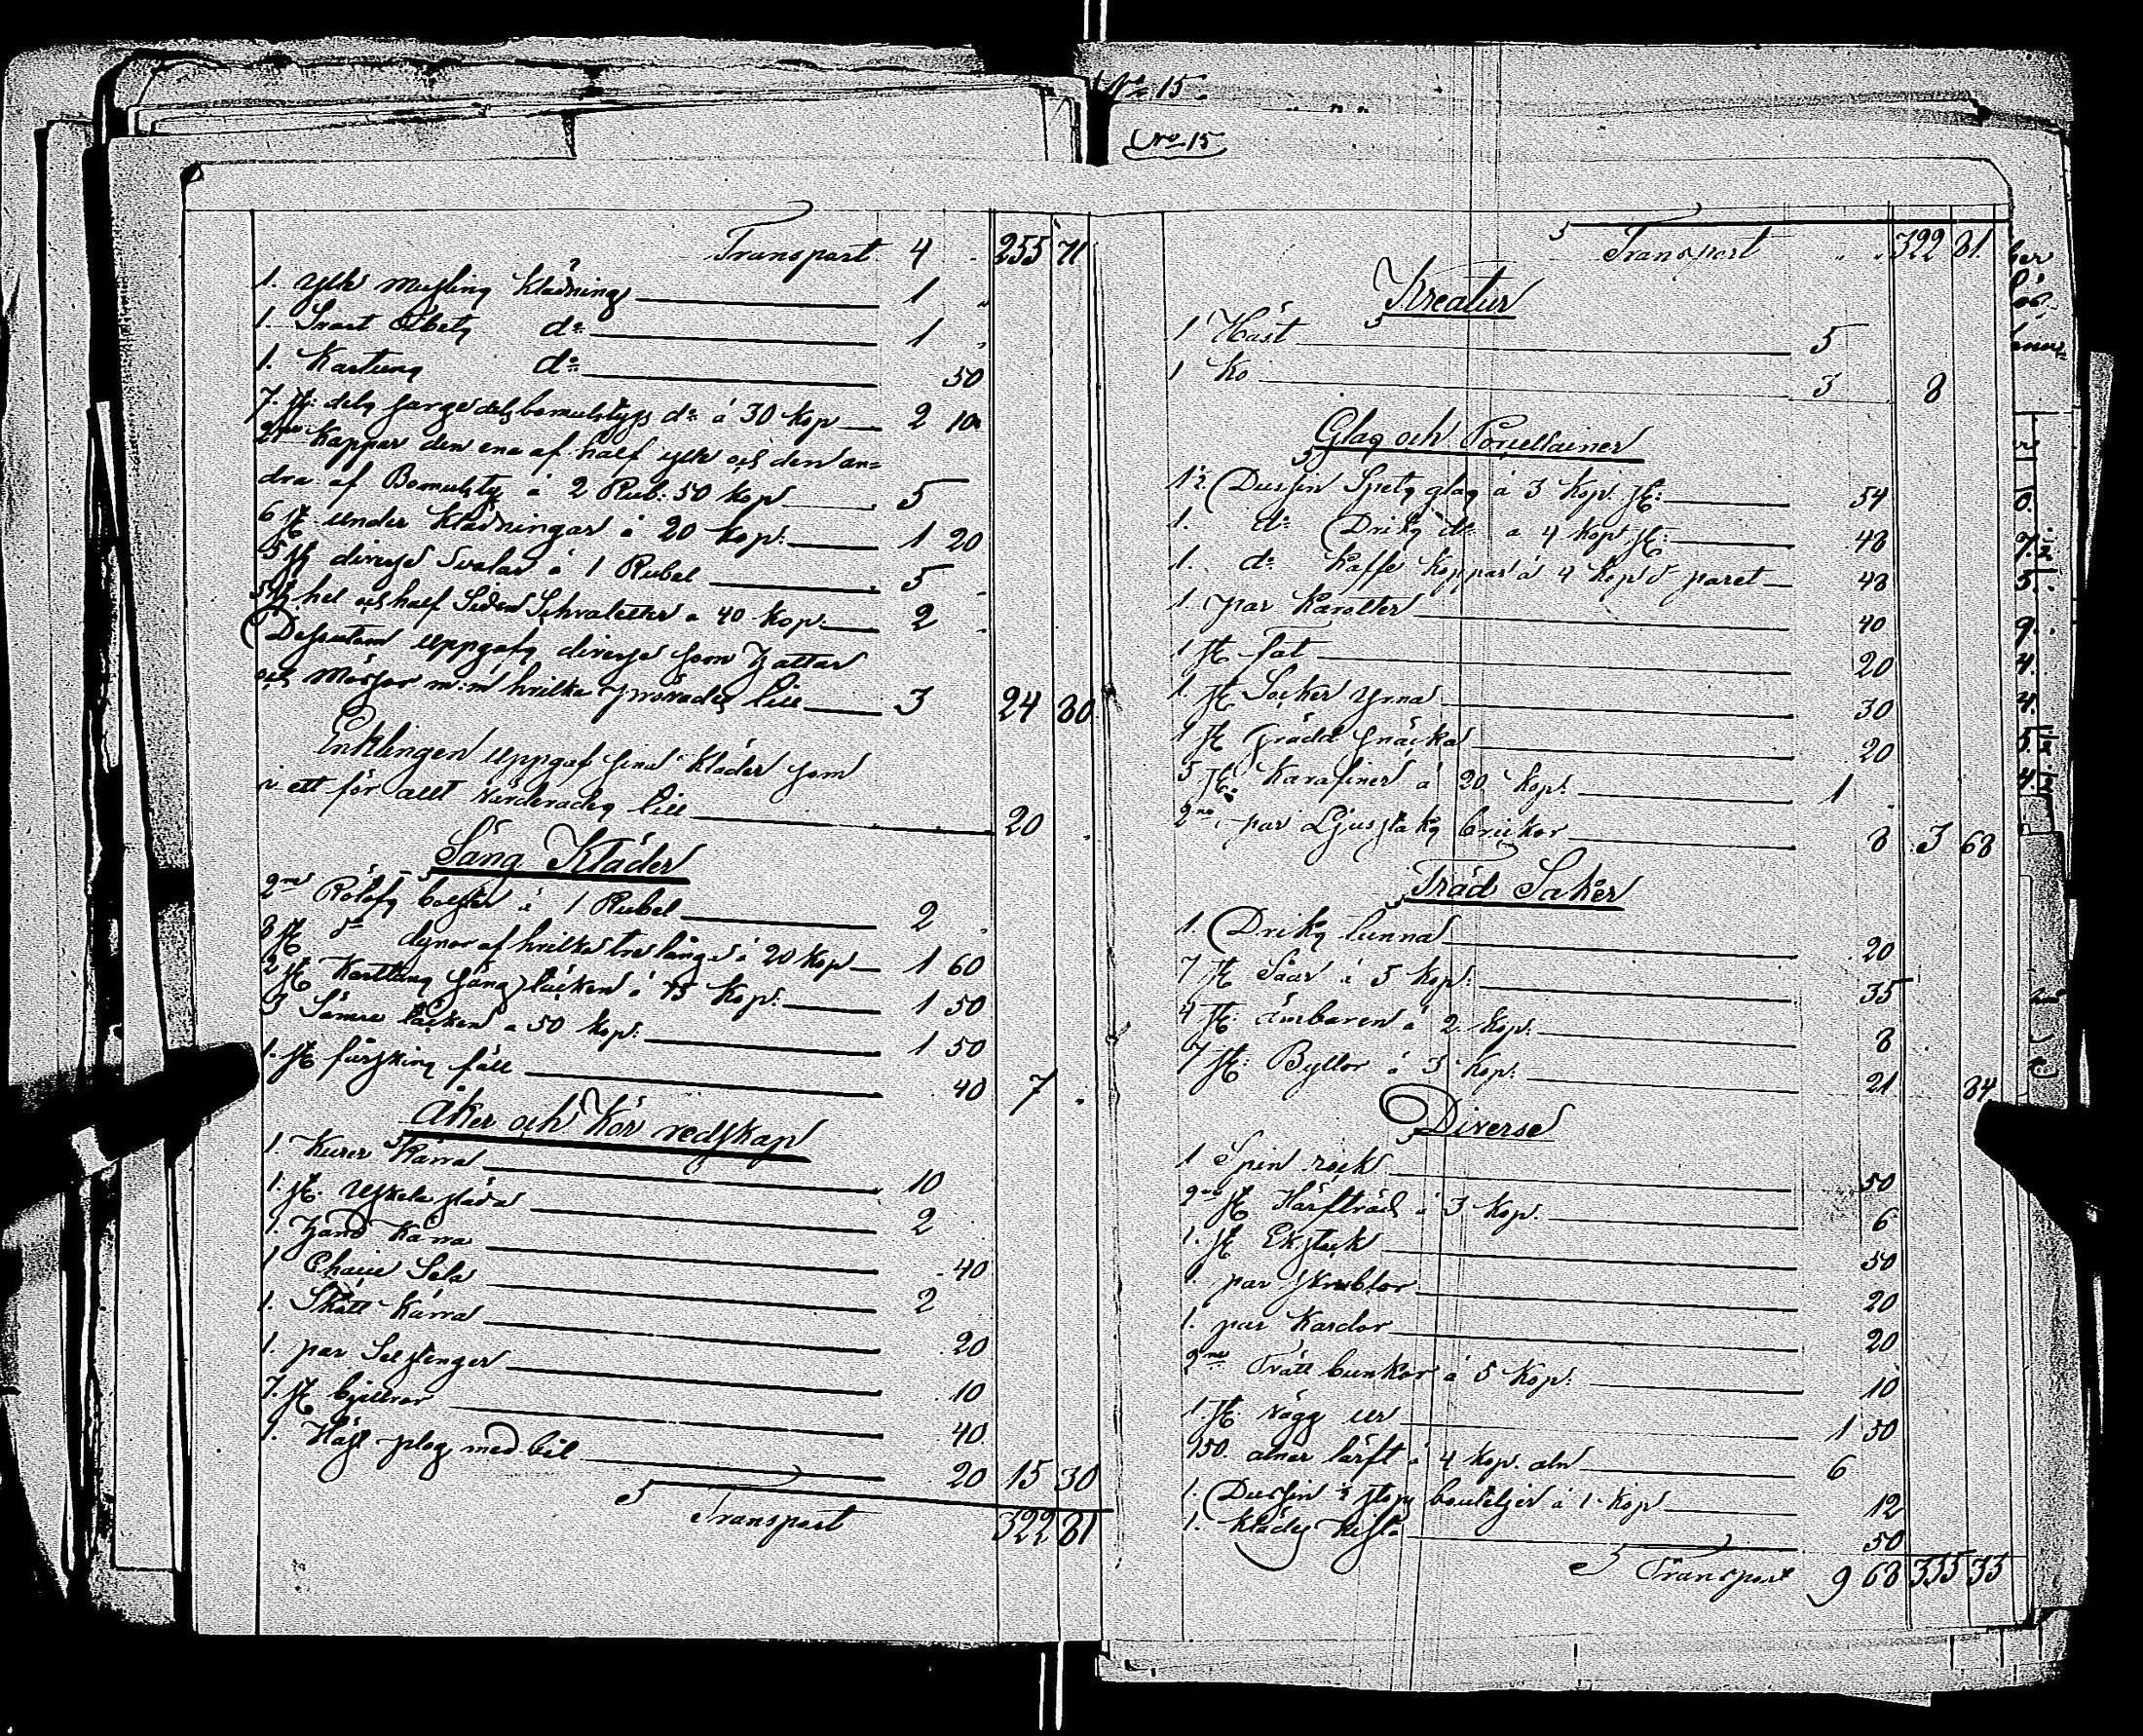 Transport 4 . 255 71
1. ylle musling klädning 1 "
1. Svart d:o 1 .
1. Kartung d:o 50
7. st: dels sarge dels bomulstygs d:o á 30 kop 2 10
2ne Kappor den ena af half ylle och den an=
dra af Bomulstyg á 2 Rub: 50 kop 5 .
6 st under klädningar á 20 kop: 1 20
5 st diverse Svalar á 1 Rubel 5 .
5 st hel och half Siden Schvaletter a 40 kop: 2 .
Dessutom uppgafs diverse som hattar
och Mössor m:m hvilka till 3 24 80
Enklingen uppgaf sina kläder som
i ett för allt värderades till 20 .
Säng Kläder
2ne Rölöfs bolster á 1 Rubel 2 .
8 st d:o dynor af hvilka tre långa á 20 kop 1 60
2 st Karttung säng täcken á 75 kop: 1 50
3 Sämre täcken a 50 kop: 1 50
1. st fårskins fäll 40 7 .
Åker och Kör redskap
1. Kurer Kärra 10
1. st. släda 2 .
1. Hand Kärra 40
1 Chaise Sela 2
1. Skått Kärra 20
1. par Selstenger 10
7. st bjellror 40
1. Häst plog med bil 20 15 30
Transport 322 81
No 15
No 15
Transport " " 322 81
Kreatur
1 Häst 5
1 Ko 3 8
Glas och Porcellainer
1½ Dussin Spets glas á 3 Kop. st: 54
1. d:o Driks d:o a 4 kop st: 48
1. d:o Kaffe koppar á 4 kop d paret 48
1. par Karotter 40
1 st fat 20
1. st Socker 30
1 st grädd snäcka 20
5 st: Karafiner á 20 Kop: 1 .
2ne par Ljusstaks brickor 8 3 68
Träd Saker
1. Driks tunna 20
7 st Såar á 5 kop: 35
4 st: ämbaren á 2 kop: 8
7 st: Byttor á 3 Kop: 21 84
Diverse
1 Spin rock 50
2ne st Härfträd á 3 kop. 6
1. st Ekstock 50
1. par skrubbor 20
1. par Kardor 20
2ne Trätt bunkar á 5 Kop: 10
1. st vägg ur 1 50
150. alnar lärft á 4 kop. aln 6
1. Dussin ½ stops bouteljer á 1 kop 12
1. kläds kista 50
Transport 9 68 335 33